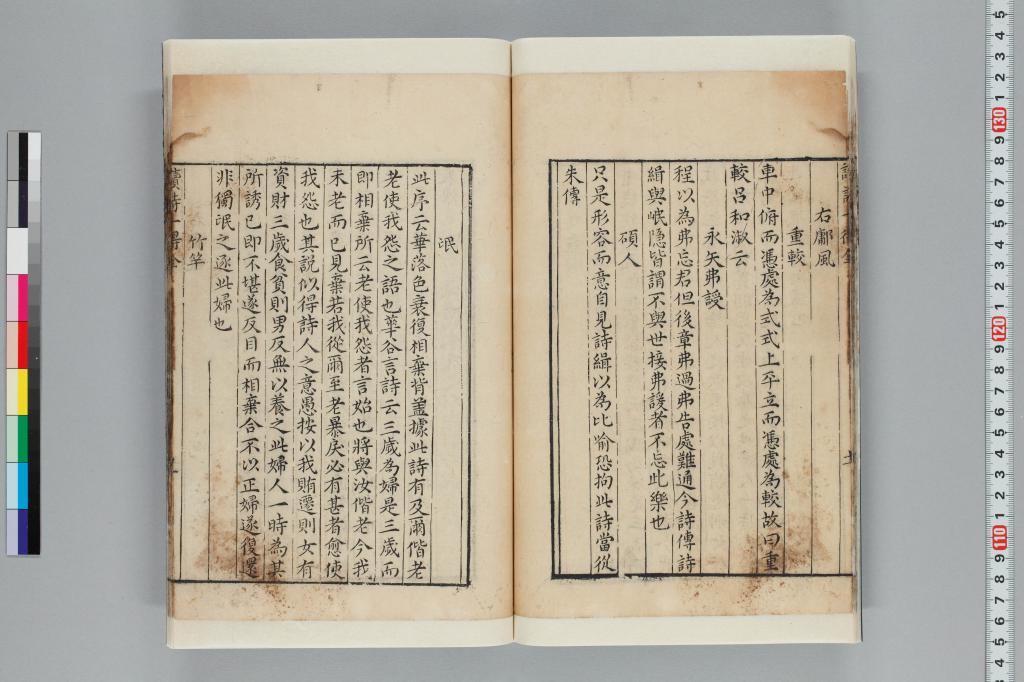 右鄘風
重較
車中俯而憑處為式式上平立而憑處為較故曰重
較呂和淑云
永矢弗諼
程以為弗忘君但後章弗過弗告處難通今詩傳詩
緝與岷隱皆謂不與世接弗諼者不忘此樂也
碩人
只是形容而意自見詩緝以為比喻恐拘此詩當從
朱傳
氓
此序云華落色衰復相棄背蓋據此詩有及爾偕老
老使我怨之語也華谷言詩云三歲為婦是三歲而
即相棄所云老使我怨者言始也將與汝偕老今我
未老而已見棄若我從爾至老暴戾必有甚者愈使
我怨也其說似得詩人之意愚按以我賄遷則女有
資財三歲食貧則男反無以養之此婦人一時為其
所誘已即不堪遂反目而相棄合不以正婦遂復還
非獨氓之逐此婦也
竹竿
讀詩一得